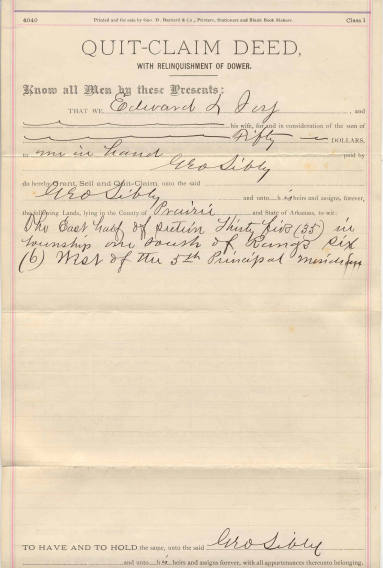 4040 Printed and for sale by Geo. D. Barnard & Co., Printers, Stationers and Blank Book Makers. Class 1
QUIT-CLAIM DEED,
WITH RELINQUISHMENT OF DOWER.
Know all Men by these Presents:
THAT WE, Edward L , and
his wife, for and in consideration of the sum of
Fifty DOLLARS,
to me in hand paid by
Geo Sibly
do hereby Grant, Sell and Quit-Claim, unto the said
Geo Sibly and unto his heirs and assigns, forever,
the following Lands, lying in the County of Prairie and State of Arkansas, to wit:
The East half of section Thirty five (35) in
township one south of Range six
(6) West of the 5th Principal meridian
TO HAVE AND TO HOLD the same, unto the said Geo Sibly
and unto his heirs and assigns forever, with all appurtenances thereunto belonging.